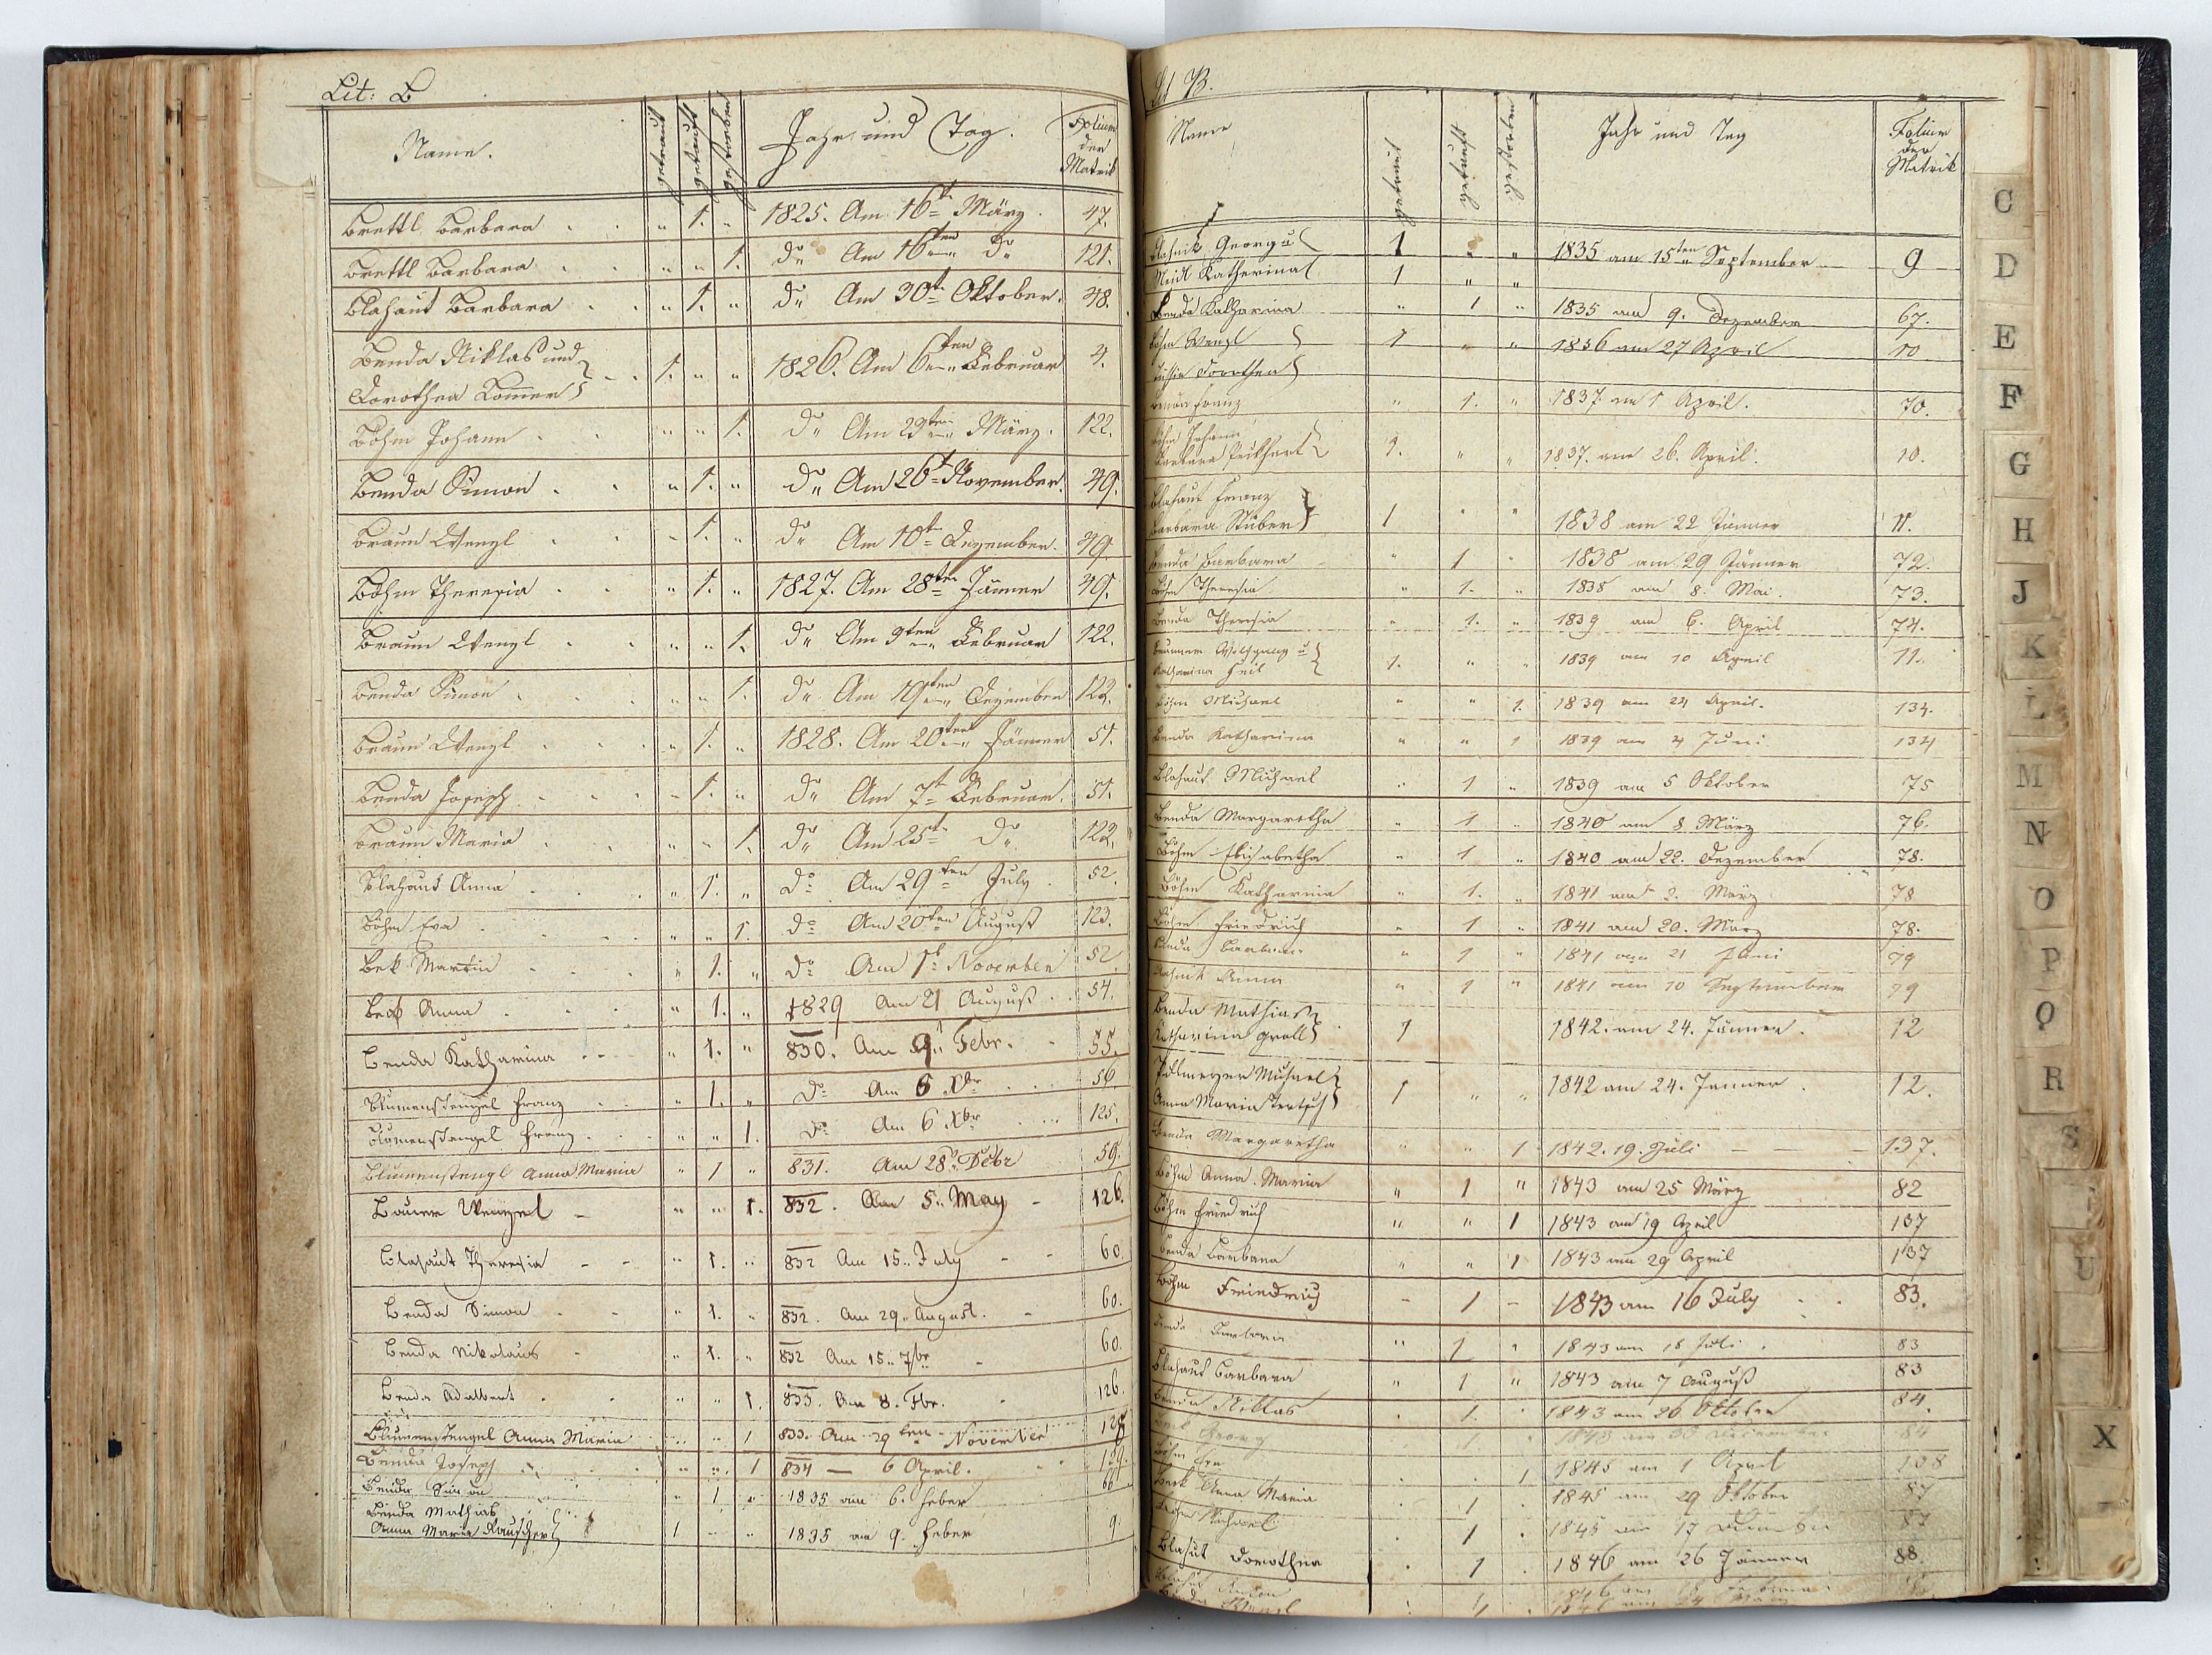 Lit: B
Name. getraut getauft gestorben Jahr und Tag. Folium der Matrik
Brettl Barbara . . " 1. " 1825. Am 16t März. 47.
Brettl Barbara . . " " 1. do Am 16ten do 121.
Blahaut Barbara . . " 1. " do Am 30t Oktober. 48.
Benda Niklas und
Dorothea . . 1. " " 1826. Am 6ten Februar 4.
Böhm Johann . . " " 1. do Am 29ten März. 122.
Benda Simon . . " 1. " do Am 26t November. 49.
Braun Wenzl . . " 1. " do Am 10t Dezember. 49.
Böhm Theresia . . " 1. " 1827. Am 28ten Jänner 49.
Braun Wenzl . . " " 1. do Am 9ten Februar 122.
Benda Simon . . " " 1. do Am 19ten Dezember 122.
Braun Wenzl . . " 1. " 1828. Am 20ten Jänner 51.
Benda Joseph . . " 1. " do Am 7t Februar. 51.
Braun Maria . . " " 1. do Am 25t do
Blahaut Anna . . " 1. " do Am 29ten July. 52.
Böhm Eva . . " " 1. do Am 20ten August 123.
Bek Martin . . " 1. " do Am 1t November 52
Anna . . " 1. " 1829 Am 21 August . . 54.
Benda Katharina . . " 1. " 830. Am 9t Febr. - 55.
Blumenstengel Franz . . " 1. " do Am 6 Xbr . . . 56.
Blumenstengel Franz . . " " 1. do Am 6 Xbr . . . 125.
Blumenstengl Anna Maria " 1 " 831. Am 28 59.
Bauer Wenzel - " " 1. 832. Am 5. May - 126.
Blahaut Theresia - - " 1. " 832 Am 15. July - - 60.
Benda Simon - - " 1. " 832. Am 29. August. - 60.
Benda Nikolaus - " 1. " 832 Am 15. 7br - 60.
Benda Adalbert . . " " 1. 833. Am 8. Fbr. . 126.
Blumenstengel Anna Maria " " 1 833. Am 29ten November
Benda Joseph " " 1 834 — 6 April.
Benda Simon " 1 " 1835 am 6. Feber 66
Benda Mathias
Anna Maria Rauscher 1 " " 1835 am 9. Feber 9.
Lit B.
Name getraut getauft gestorben Jahr und Tag Folium der Matrik
Georg u 1 " " 1835 am 15ten September 9
Katherina 1 " "
Benda Katharina " 1 " 1835 am 9. Dezember 67.
Böhm Wenzl 1 " " 1836 am 27 April 10
Dorothea
Benda Franz " 1. " 1837. am 1 April. 70.
Böhm Johann
Barbara 1. " " 1837. am 26. April. 10.
Blahaut Franz
Barbara Stuber 1 " " 1838 am 22 Jänner 11.
Benda Barbara " 1 " 1838 am 29 Jänner 72.
Böhm Theresia " 1. " 1838 am 8. Mai. 73.
Benda Theresia " 1. " 1839 am 6. April 74.
Wolfgang u
Katharina 1. " " 1839 am 10 April 11.
Böhm Michael " " 1. 1839 am 24 April. 134.
Benda Katharina " " 1 1839 am 4 Juni 134
Blahaut Michael " 1 " 1839 am 5 Oktober 75
Benda Margaretha " 1 " 1840 am 8 März 76.
Böhm Elisabetha " 1 " 1840 am 22. Dezember 78.
Böhm Katharina " 1. " 1841 am 2. März 78
Böhm Friedrich " 1 " 1841 am 20. März 78.
Benda Barbara " 1 " 1841 am 21 Juni 79
Anna " 1 " 1841 am 10 September 79
Benda Mathias
Katharina 1 1842. am 24. Jänner. 12
Michael
Anna Maria 1 " " 1842 am 24. Jenner . 12.
Benda Margaretha " " 1 1842. 19. Juli — — 137.
Böhm Anna Maria " 1 " 1843 am 25 März 82
Böhm Friedrich " " 1 1843 am 19 April 137
Benda Barbara " " 1 1843 am 29 April 137
Böhm Friedrich - 1 - 1843 am 16 July . . 83.
Benda Barbara " 1 " 1843 am 18 Juli. 83
Blahaut Barbara " 1 " 1843 am 7 August 83
Benda Niklas . 1. . 1843 am 26 Oktober 84.
Georg . 1 . 1843 am 30 84
Böhm Eva . . 1 1845 am 1 April 138
Beck Anna Maria . 1 . 1845 am 29 Oktober 87
Michael . 1 . 1845 am 17 87
Blahut Dorothea . 1 . 1846 am 26 Jänner 88.
C
D
E
F
G
H
J
K
L
M
N
O
P
Q
R
S
U
X